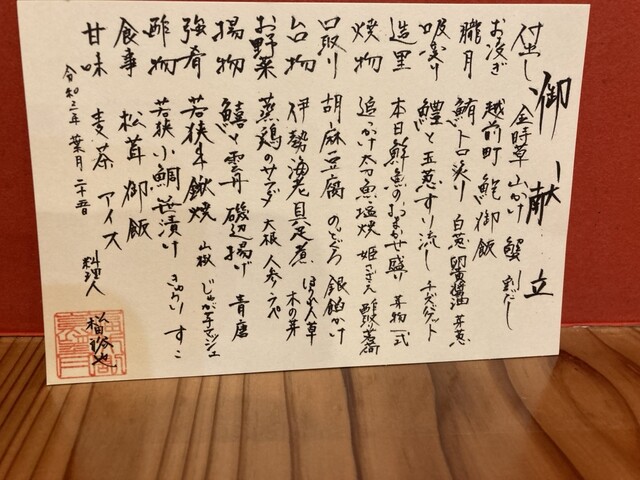 御献立
付出し 金時草 山かけ 蟹 割だし
お凌ぎ 越前町 鮑御飯
朧月 鮪トロ炙り 白葱 卵黄醤油 芽葱
吸変り 鱧と玉葱すり流し チーズバゲット
造里 本日鮮魚のおまかせ盛り 芽物一式
焼物 追っかけ太刀魚塩焼 姫さざえ 酢取り茗荷
口取り 胡麻豆腐 のどぐろ 銀餡かけ
台物 伊勢海老具足煮 ほうれん草 木の芽
お野菜 蒸鶏のサラダ 大根 人参 うど
揚物 鱚と雲丹 磯辺揚げ 青唐
強肴 若狭牛鍬焼 山椒 じゃが芋マッシュ
酢物 若狭小鯛笹漬け きゅうり すこ
食事 松茸御飯
甘味 麦茶アイス
令和三年 葉月二十五日
料理人